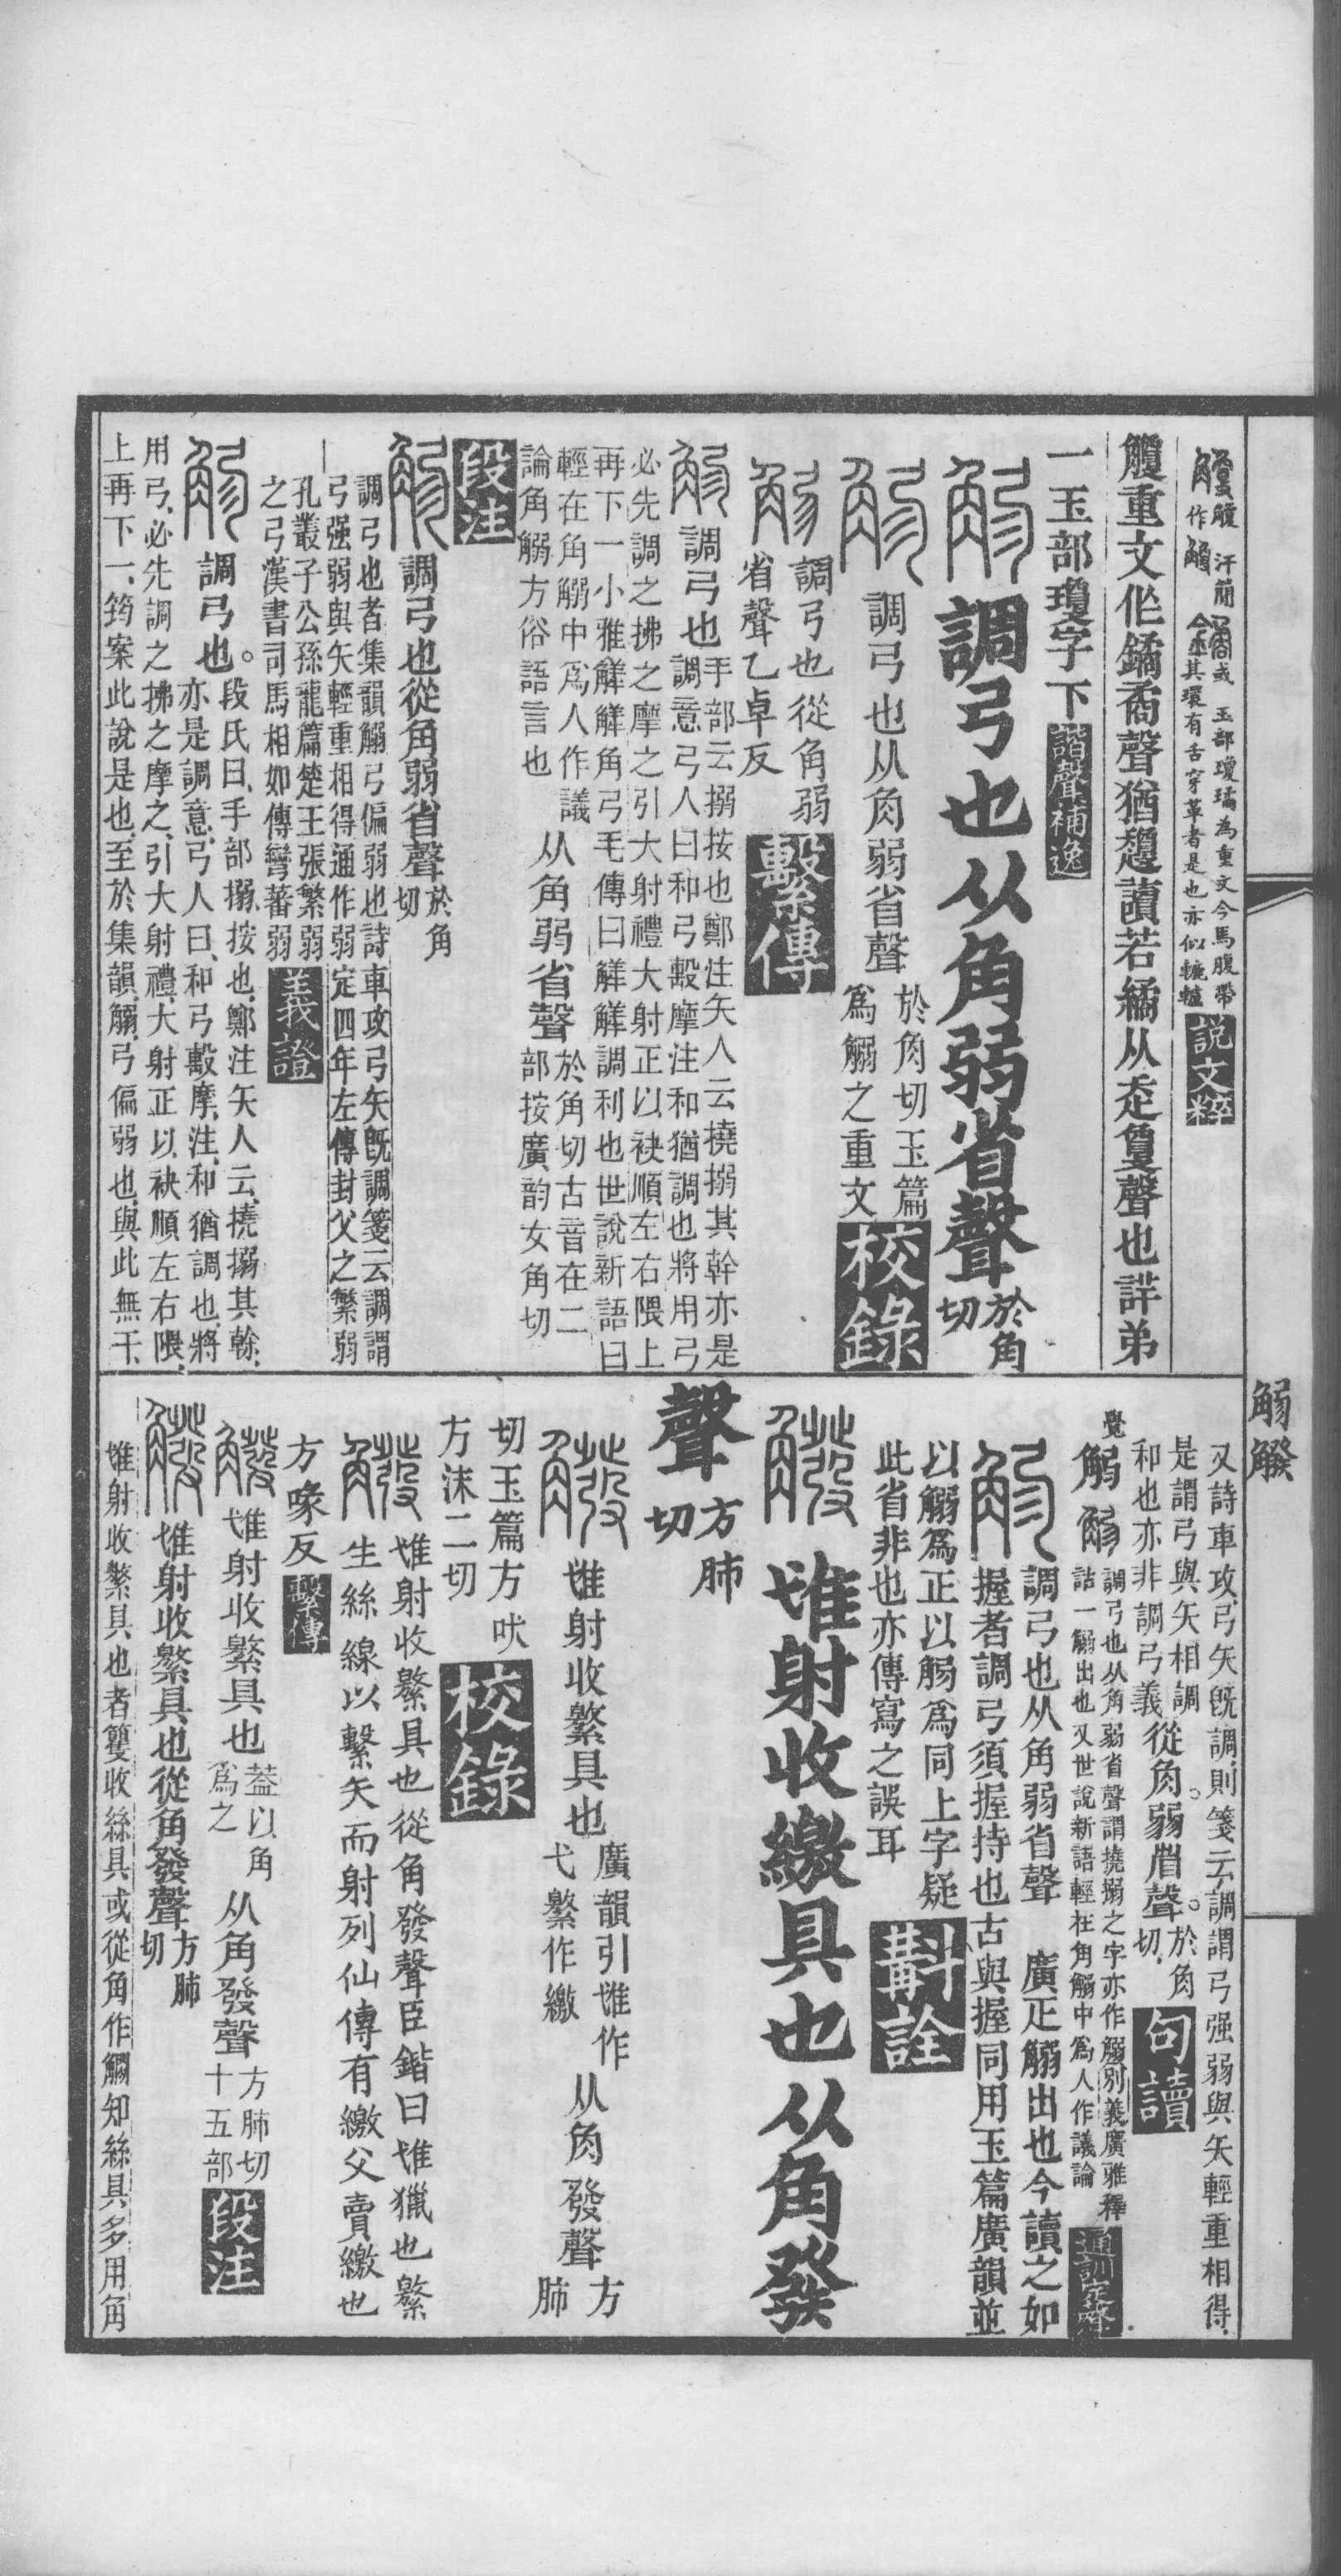 觼 觼 汗簡作觼 鐍 或 玉部瓊璚為重文今馬腹帶
其環有舌穿革者是也亦似轆轤 說文粹
觼重文作鐍矞聲猶趫讀若繘从辵敻聲也詳弟
一玉部瓊字下 諧聲補逸
調弓也从角弱省聲 於角切
調弓也从角弱省聲 於角切玉篇
爲觸之重文 校錄
調弓也從角弱
省聲乙卓反 繫傳
調弓也 手部云搦按也鄭注矢人云撓搦其幹亦是
調意弓人曰和弓毄摩注和猶調也將用弓
必先調之拂之摩之引大射禮大射正以袂順左右隈上
再下一小雅觲觲角弓毛傳曰觲觲調利也世說新語曰
輕在角䚥中爲人作議
論角䚥方俗語言也 从角弱省聲 於角切古音在二
部按廣韵女角切
段注
調弓也從角弱省聲 於角切
調弓也者集韻䚥弓偏弱也詩車攻弓矢旣調箋云調謂
弓强弱與矢輕重相得通作弱定四年左傳封父之繁弱
孔叢子公孫龍篇楚王張繁弱
之弓漢書司馬相如傳彎蕃弱 義證
調弓也。段氏曰手部搦按也鄭注矢人云撓搦其榦
亦是調意弓人曰和弓毄摩注和猶調也將
用弓必先調之拂之摩之引大射禮大射正以袂順左右隈
上再下一筠案此說是也至於集韻䚥弓偏弱也與此無干
䚥 䚨
又詩車攻弓矢旣調則箋云調謂弓强弱與矢輕重相得
是謂弓與矢相調
和也亦非調弓義 從角弱省聲。於角切 句讀
覺 調弓也从角弱省聲謂撓搦之字亦作䚥別義廣雅釋
詁一䚥出也又世說新語輕在角䚥中爲人作議論 通訓定聲
調弓也从角弱省聲 廣疋䚥出也今讀之如
握者調弓須握持也古與握同用玉篇廣韻並
以䚥爲正以觸爲同上字疑
此省非也亦傳寫之誤耳 斠詮
惟射收繳具也从角發
聲 方肺切
惟射收繁具也 廣韻引惟作
弋繁作繳 从角發聲 方肺
切玉篇方吠
方沫二切 校錄
惟射收繁具也從角發聲臣鍇曰惟獵也繁
生絲線以繫矢而射列仙傳有繳父賣繳也
方喙反 繫傳
惟射收繁具也 葢以角爲之 从角發聲 方肺切
十五部 段注
惟射收繁具也從角發聲 方肺切
惟射收繁具也者籰收絲具或從角作觼知絲具多用角